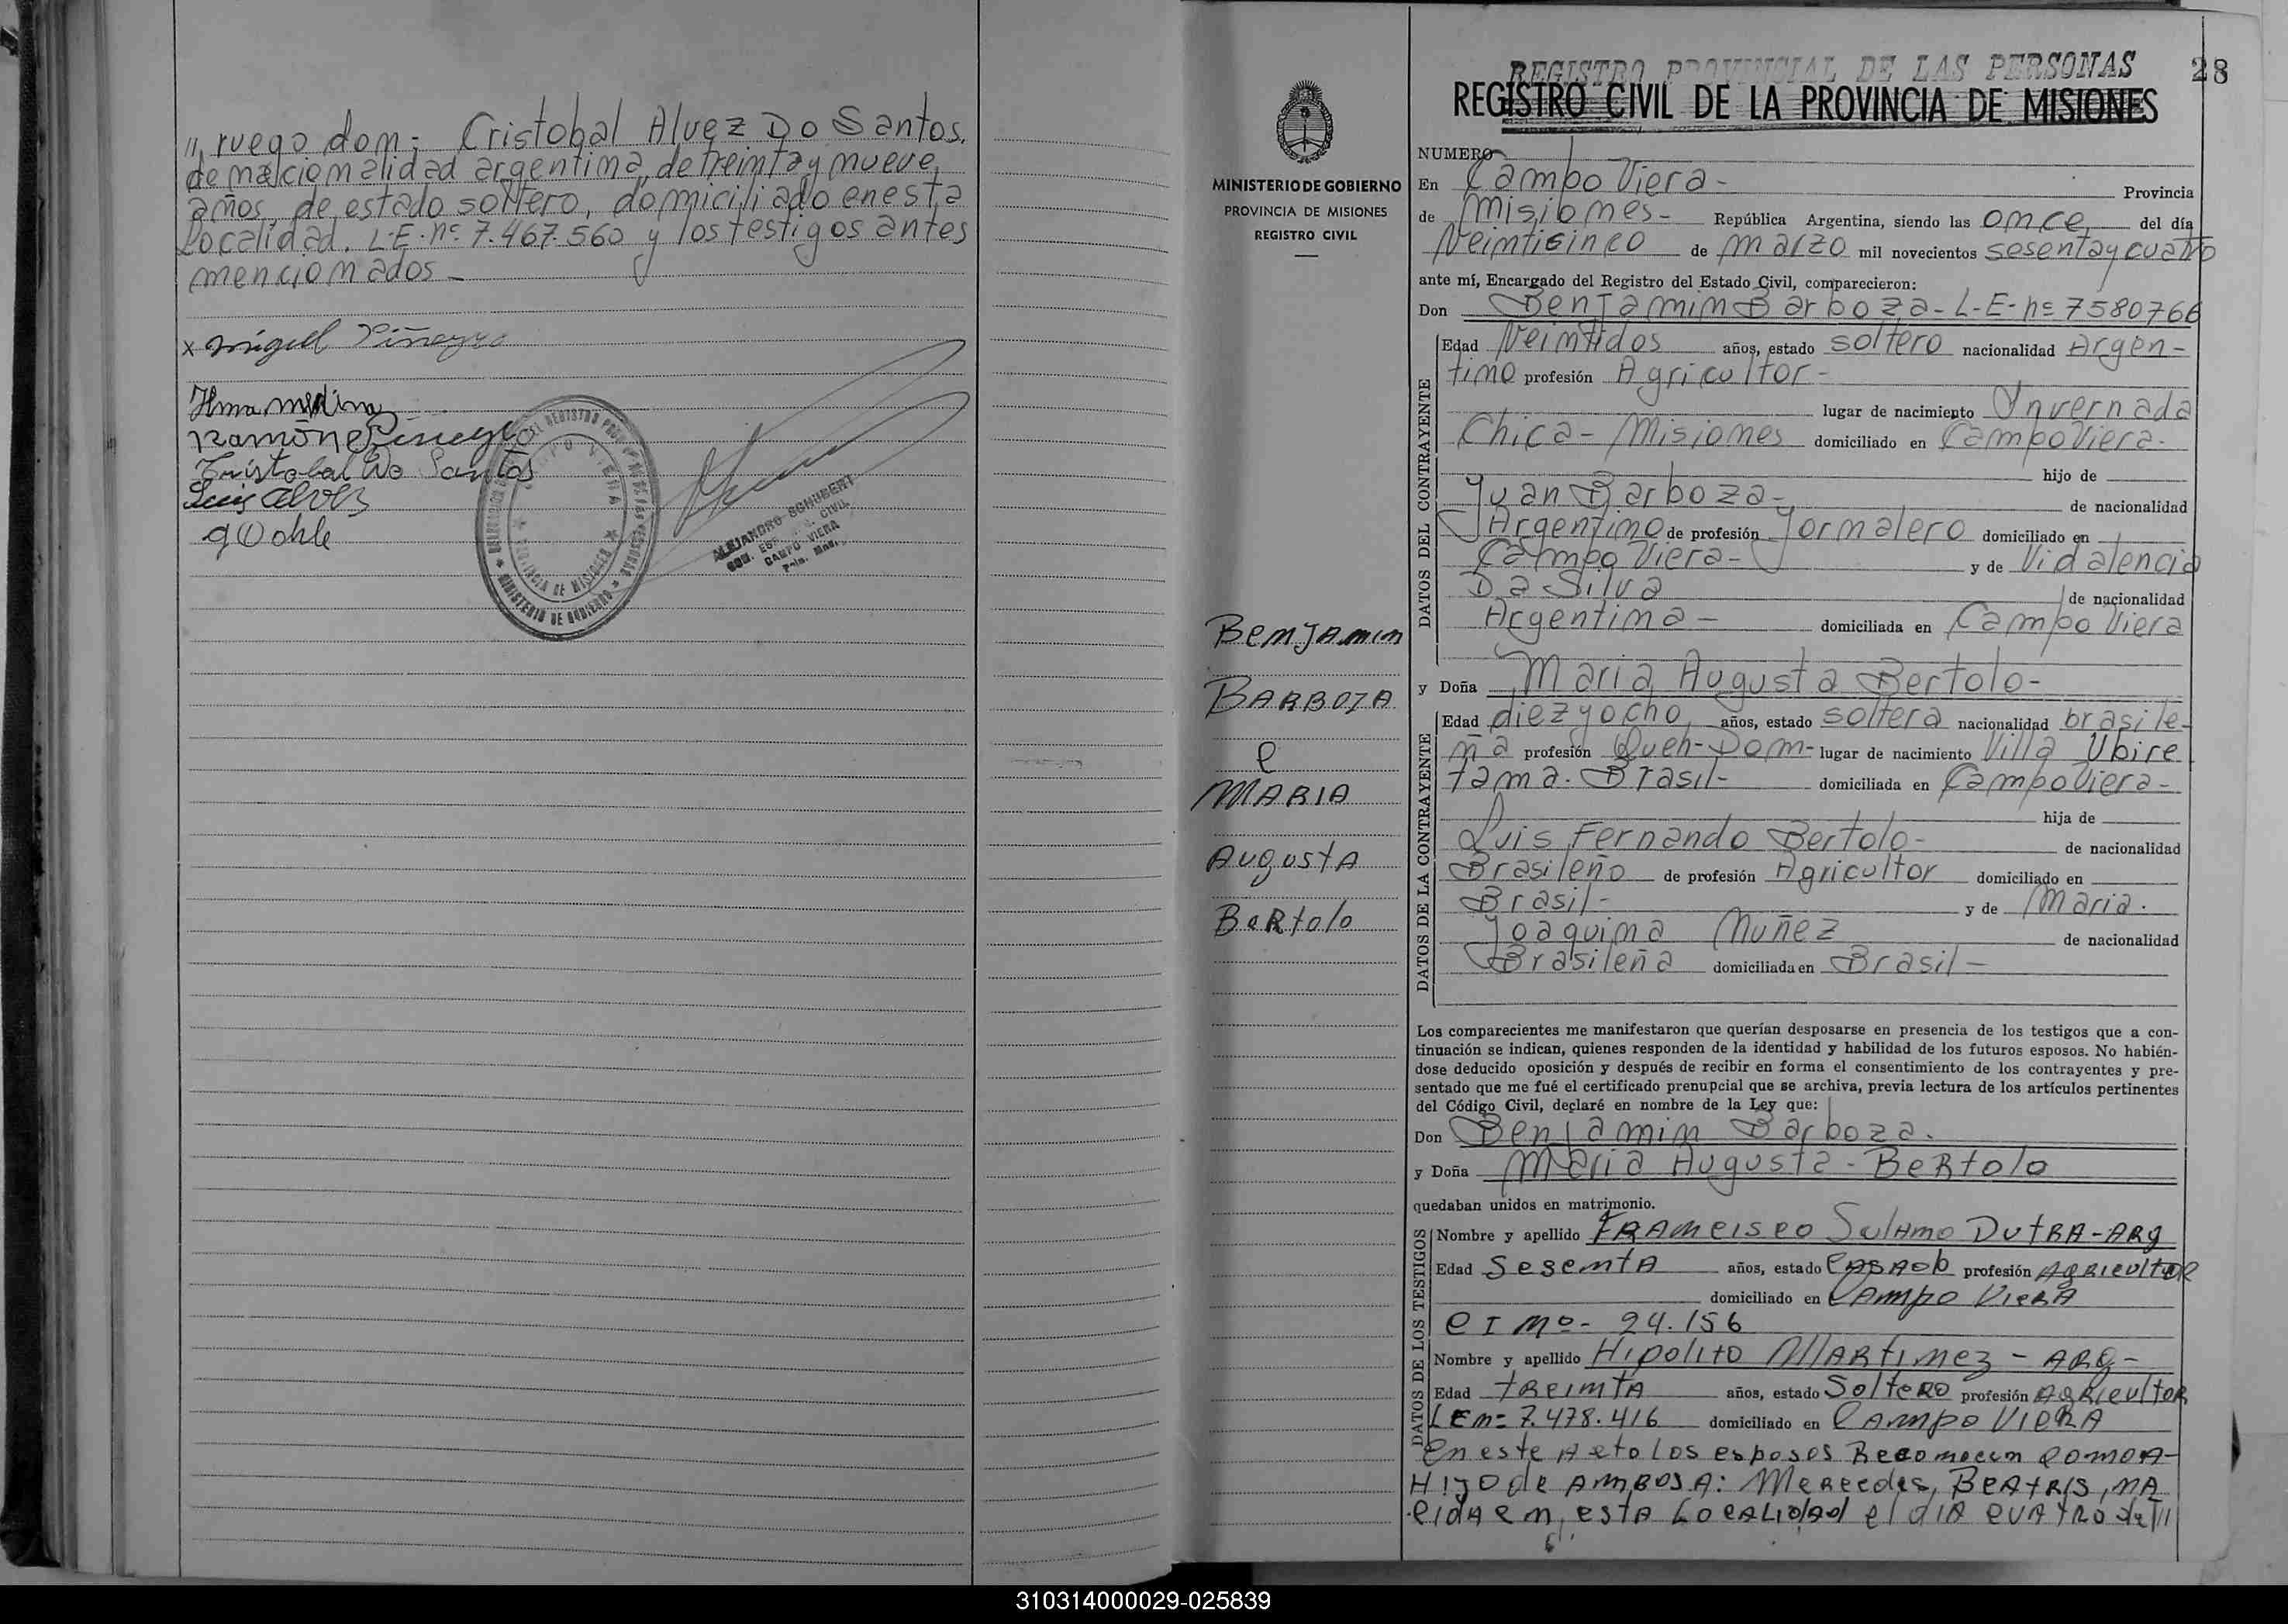 " ruego don - Cristobal Alvez Do Santos.
de nacionalidad argentina, de treinta y nueve,
años, de estado soltero, domiciliado en esta
localidad, L-E-nº 7.467.560 y los testigos antes
mencionados -
x Miguel Piñeyro
Ilma Medina
Ramón Piñeyro
Cristobal Do Santos
Luis Alves
ALEJANDRO SCHUBERT
CAMPO VIERA
MINISTERIO DE GOBIERNO
PROVINCIA DE MISIONES
REGISTRO CIVIL
Benjamin
Barboza
e
Maria
Augusta
Bertolo
REGISTRO PROVINCIAL DE LAS PERSONAS 28
REGISTRO CIVIL DE LA PROVINCIA DE MISIONES
NUMERO
En Campo Viera - Provincia
de Misiones - República Argentina, siendo las once del día
Veinticinco de marzo mil novecientos sesenta y cuatro
ante mí, Encargado del Registro del Estado Civil, comparecieron:
Don Benjamin Barboza - L-E-nº 7580766
DATOS DEL CONTRAYENTE
Edad Veintidos años, estado soltero nacionalidad Argen-
tino profesión Agricultor -
lugar de nacimiento Invernada
Chica - Misiones domiciliado en Campo Viera -
hijo de
Juan Barboza - de nacionalidad
Argentino de profesión Jornalero domiciliado en
Campo Viera - y de Vidalencia
Da Silva de nacionalidad
Argentina - domiciliada en Campo Viera
y Doña Maria Augusta Bertolo -
DATOS DE LA CONTRAYENTE
Edad diez y ocho, años, estado soltera nacionalidad brasile-
ña profesión Queh-Dom- lugar de nacimiento Villa Ubire
tama. Brasil - domiciliada en Campo Viera -
hija de
Luis Fernando Bertolo - de nacionalidad
Brasileño de profesión Agricultor domiciliado en
Brasil - y de Maria.
Joaquina Muñez de nacionalidad
Brasileña domiciliada en Brasil -
Los comparecientes me manifestaron que querían desposarse en presencia de los testigos que a con-
tinuación se indican, quienes responden de la identidad y habilidad de los futuros esposos. No habién-
dose deducido oposición y después de recibir en forma el consentimiento de los contrayentes y pre-
sentado que me fué el certificado prenupcial que se archiva, previa lectura de los artículos pertinentes
del Código Civil, declaré en nombre de la Ley que:
Don Benjamin Barboza.
y Doña Maria Augusta - Bertolo
quedaban unidos en matrimonio.
DATOS DE LOS TESTIGOS
Nombre y apellido Francisco Dutra - Arg
Edad Sesenta años, estado Casado profesión Agricultor
domiciliado en Campo Viera
CI Nº - 24.156
Nombre y apellido Hipolito Martinez - Arg -
Edad treinta años, estado Soltero profesión Agricultor
LE nº 7.478.416 domiciliado en Campo Viera
En este Acto los esposos Reconocen como A -
Hijo de Ambos A: Mercedes, Beatris, na
cida en esta Localidad el dia cuatro de //
310314000029-025839